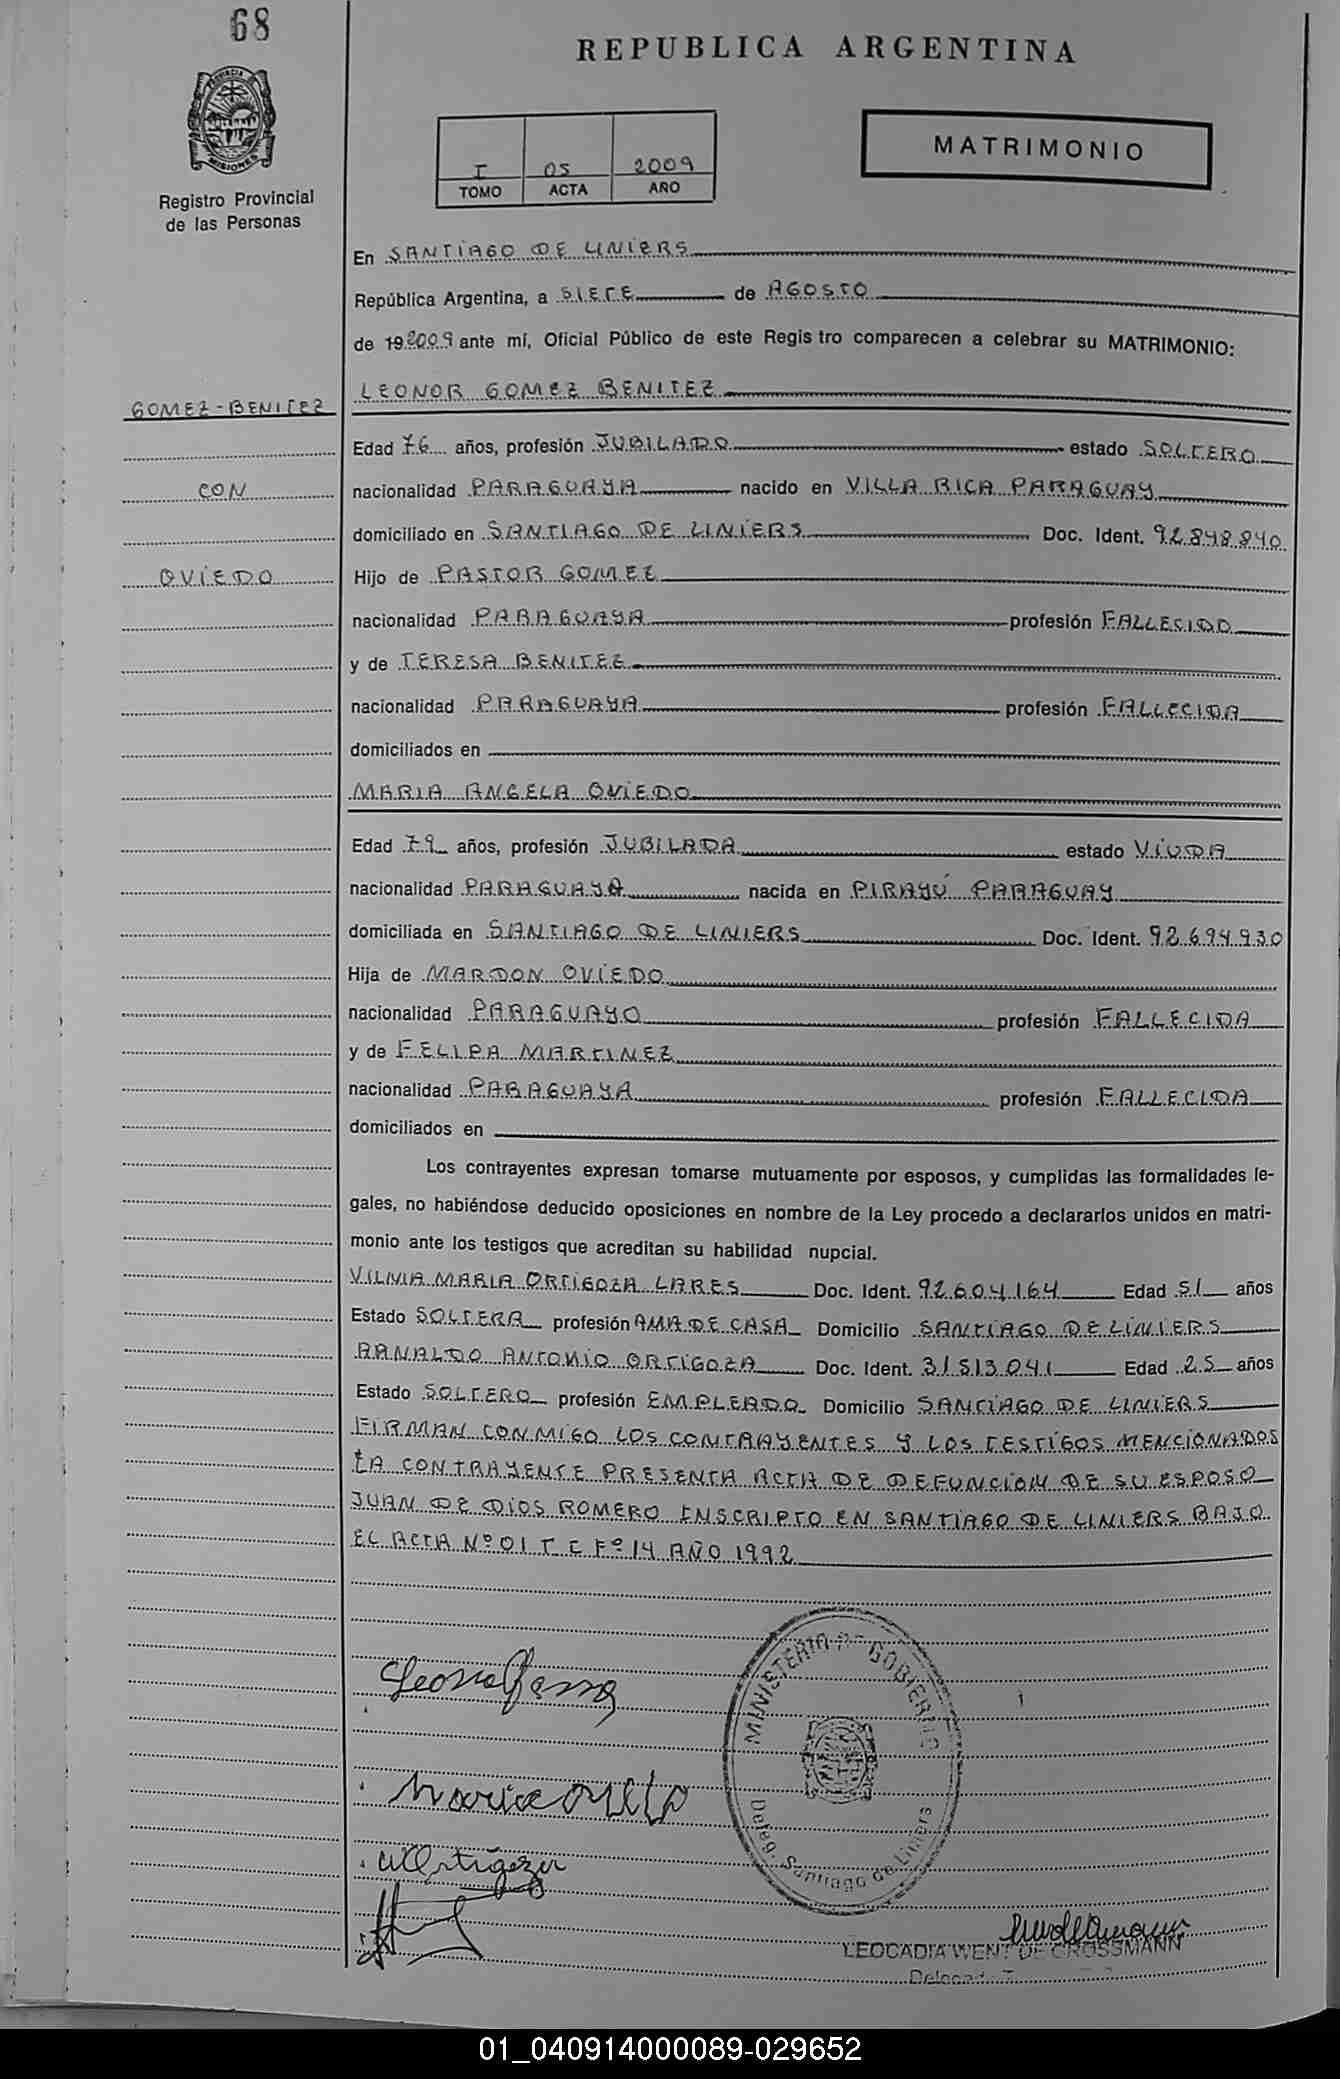 68
REPUBLICA ARGENTINA
PROVINCIA DE MISIONES
Registro Provincial
de las Personas
I 05 2009
TOMO ACTA AÑO
MATRIMONIO
En SANTIAGO DE LINIERS
República Argentina, a SIETE de AGOSTO
de 19 2009 ante mí, Oficial Público de este Registro comparecen a celebrar su MATRIMONIO:
GOMEZ-BENITEZ
CON
OVIEDO
LEONOR GOMEZ BENITEZ
Edad 76 años, profesión JUBILADO estado SOLTERO
nacionalidad PARAGUAYA nacido en VILLA RICA PARAGUAY
domiciliado en SANTIAGO DE LINIERS Doc. Ident. 92.848.840
Hijo de PASTOR GOMEZ
nacionalidad PARAGUAYA profesión FALLESIDO
y de TERESA BENITEZ
nacionalidad PARAGUAYA profesión FALLECIDA
domiciliados en
MARIA ANGELA OVIEDO
Edad 79 años, profesión JUBILADA estado VIUDA
nacionalidad PARAGUAYA nacida en PIRAYÚ PARAGUAY
domiciliada en SANTIAGO DE LINIERS Doc. Ident. 92.694.930
Hija de MARDON OVIEDO
nacionalidad PARAGUAYO profesión FALLECIDA
y de FELIPA MARTINEZ
nacionalidad PARAGUAYA profesión FALLECIDA
domiciliados en
Los contrayentes expresan tomarse mutuamente por esposos, y cumplidas las formalidades le-
gales, no habiéndose deducido oposiciones en nombre de la Ley procedo a declararlos unidos en matri-
monio ante los testigos que acreditan su habilidad nupcial.
VILMA MARIA ORTIGOZA LARES Doc. Ident. 92.604.164 Edad 51 años
Estado SOLTERA profesión AMA DE CASA Domicilio SANTIAGO DE LINIERS
ARNALDO ANTONIO ORTIGOZA Doc. Ident. 31.513.041 Edad 25 años
Estado SOLTERO profesión EMPLEADO Domicilio SANTIAGO DE LINIERS
FIRMAN CONMIGO LOS CONTRAYENTES Y LOS TESTIGOS MENCIONADOS
LA CONTRAYENTE PRESENTA ACTA DE DEFUNCION DE SU ESPOSO
JUAN DE DIOS ROMERO INSCRIPTO EN SANTIAGO DE LINIERS BAJO
EL ACTA Nº 01 T I Fº 14 AÑO 1992
MINISTERIO DE GOBIERNO
Deleg. Santiago de Liniers
Maria Oviedo
Ortigoza
LEOCADIA WENT DE CROSSMANN
01_040914000089-029652